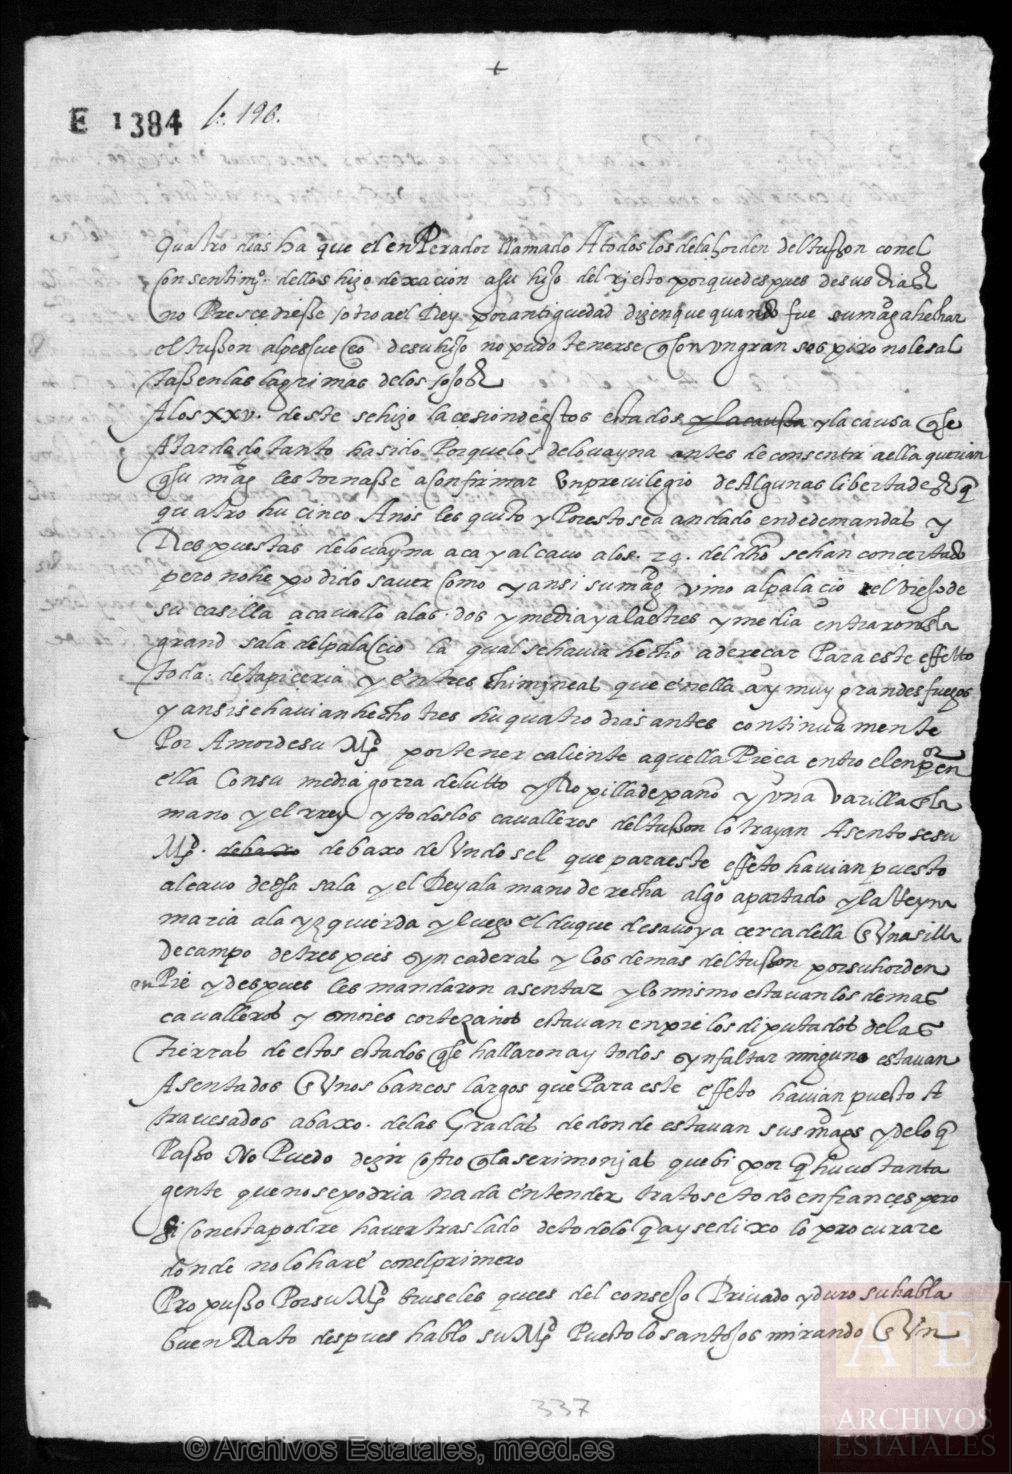 +
E 1384 fo: 196.
quatro dias ha que el enPerador llamado A todos los de la horden del tusson con el
consentimyº. dellos hizo dexacion a su hijo del rjesto porque despues de sus dias
no Presçediesse otro a el Rey por antiguedad dizen que quando fue su magd a hechar
el tusson al pesqueço de su hijo no pudo tenerse que con un gran sospiro no le sal
tassen las lagrimas de los ojos
A los xxv. deste se hizo la cesion de estos estados y la caussa y la causa que se
A tardado tanto ha sido Porque los de lovayna antes de consentir a ella querian
que su magd les tornasse a confirmar un previlegio de Algunas libertades que
quatro hu cinco Anos les quito y Por esto se a andado en demandas y
Respuestas de lovayna aca y al cavo a los. 24. del dho se han concertado
pero no he podido saver como y ansi su magd vino al palacio el viejo de
su casilla a cavallo a las dos y media y a las tres y media entraron en la
grand sala del palascio la qual se havia hecho adereçar Para este effetto
toda de tapiceria y en tres chimjneas que en ella ay muy grandes fuegos
y ansi se havian hecho tres hu quatro dias antes continuamente
Por Amor de su Mgd por tener caliente aquella Pieça entro el enpor en
ella Con su media gorra de lutto y Ropilla de paño y una varilla en la
mano y el rrey y todos los cavalleros del tusson lo trayan Asentose su
Mgd. debaxo debaxo de un dosel que para este effeto havian puesto
al cavo de la sala y el Rey a la mano derecha algo apartado y la Reyna
maria a la yzquierda y luego el duque de savoya cerca della en una silla
de campo de tres pies syn caderas y los demas del tusson por su horden
en Pie y despues les mandaron asentar y lo mismo estavan los demas
cavalleros y cortezanos estavan en pie los diputados de las
Tierras de estos estados que se hallaron ay todos syn faltar ninguno estavan
Asentados en unos bancos largos que Para este effeto havian puesto A
travesados abaxo. de las Gradas de donde estavan sus mags y de lo que
Passo No Puedo dezir otro que la serimonjas que bi por que huvo tanta
gente que no se podria nada entender tratose todo en françes pero
si con esta podre haver traslado de todo lo que ay se dixo lo procurare
donde no lo haré con el primero
Propusso Por su Mgd bruseles que es del consejo Privado y duro su habla
buen Rato despues hablo su Mgd Puesto los antojos mirando en un
337
© Archivos Estatales, mecd.es
AE
ARCHIVOS
ESTATALES